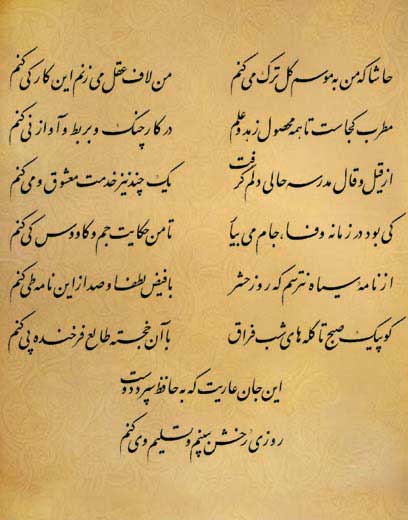 حاشا که من به موسم گل ترک می کنم من لاف عقل می زنم این کار کی کنم
مطرب کجاست تا همه محصول زهد و علم در کار چنگ و بربط و آواز نی کنم
از قیل و قال مدرسه حالی دلم گرفت یک چند نیز خدمت معشوق و می کنم
کی بود در زمانه وفا، جام می بیار تا من حکایت جم و کاووس کی کنم
از نامهٔ سیاه نترسم که روز حشر با فیض لطف او صد از این نامه طی کنم
کو پیک صبح تا گله های شب فراق با آن خجسته طالع فرخنده پی کنم
این جان عاریت که به حافظ سپرد دوست
روزی رخش ببینم و تسلیم وی کنم